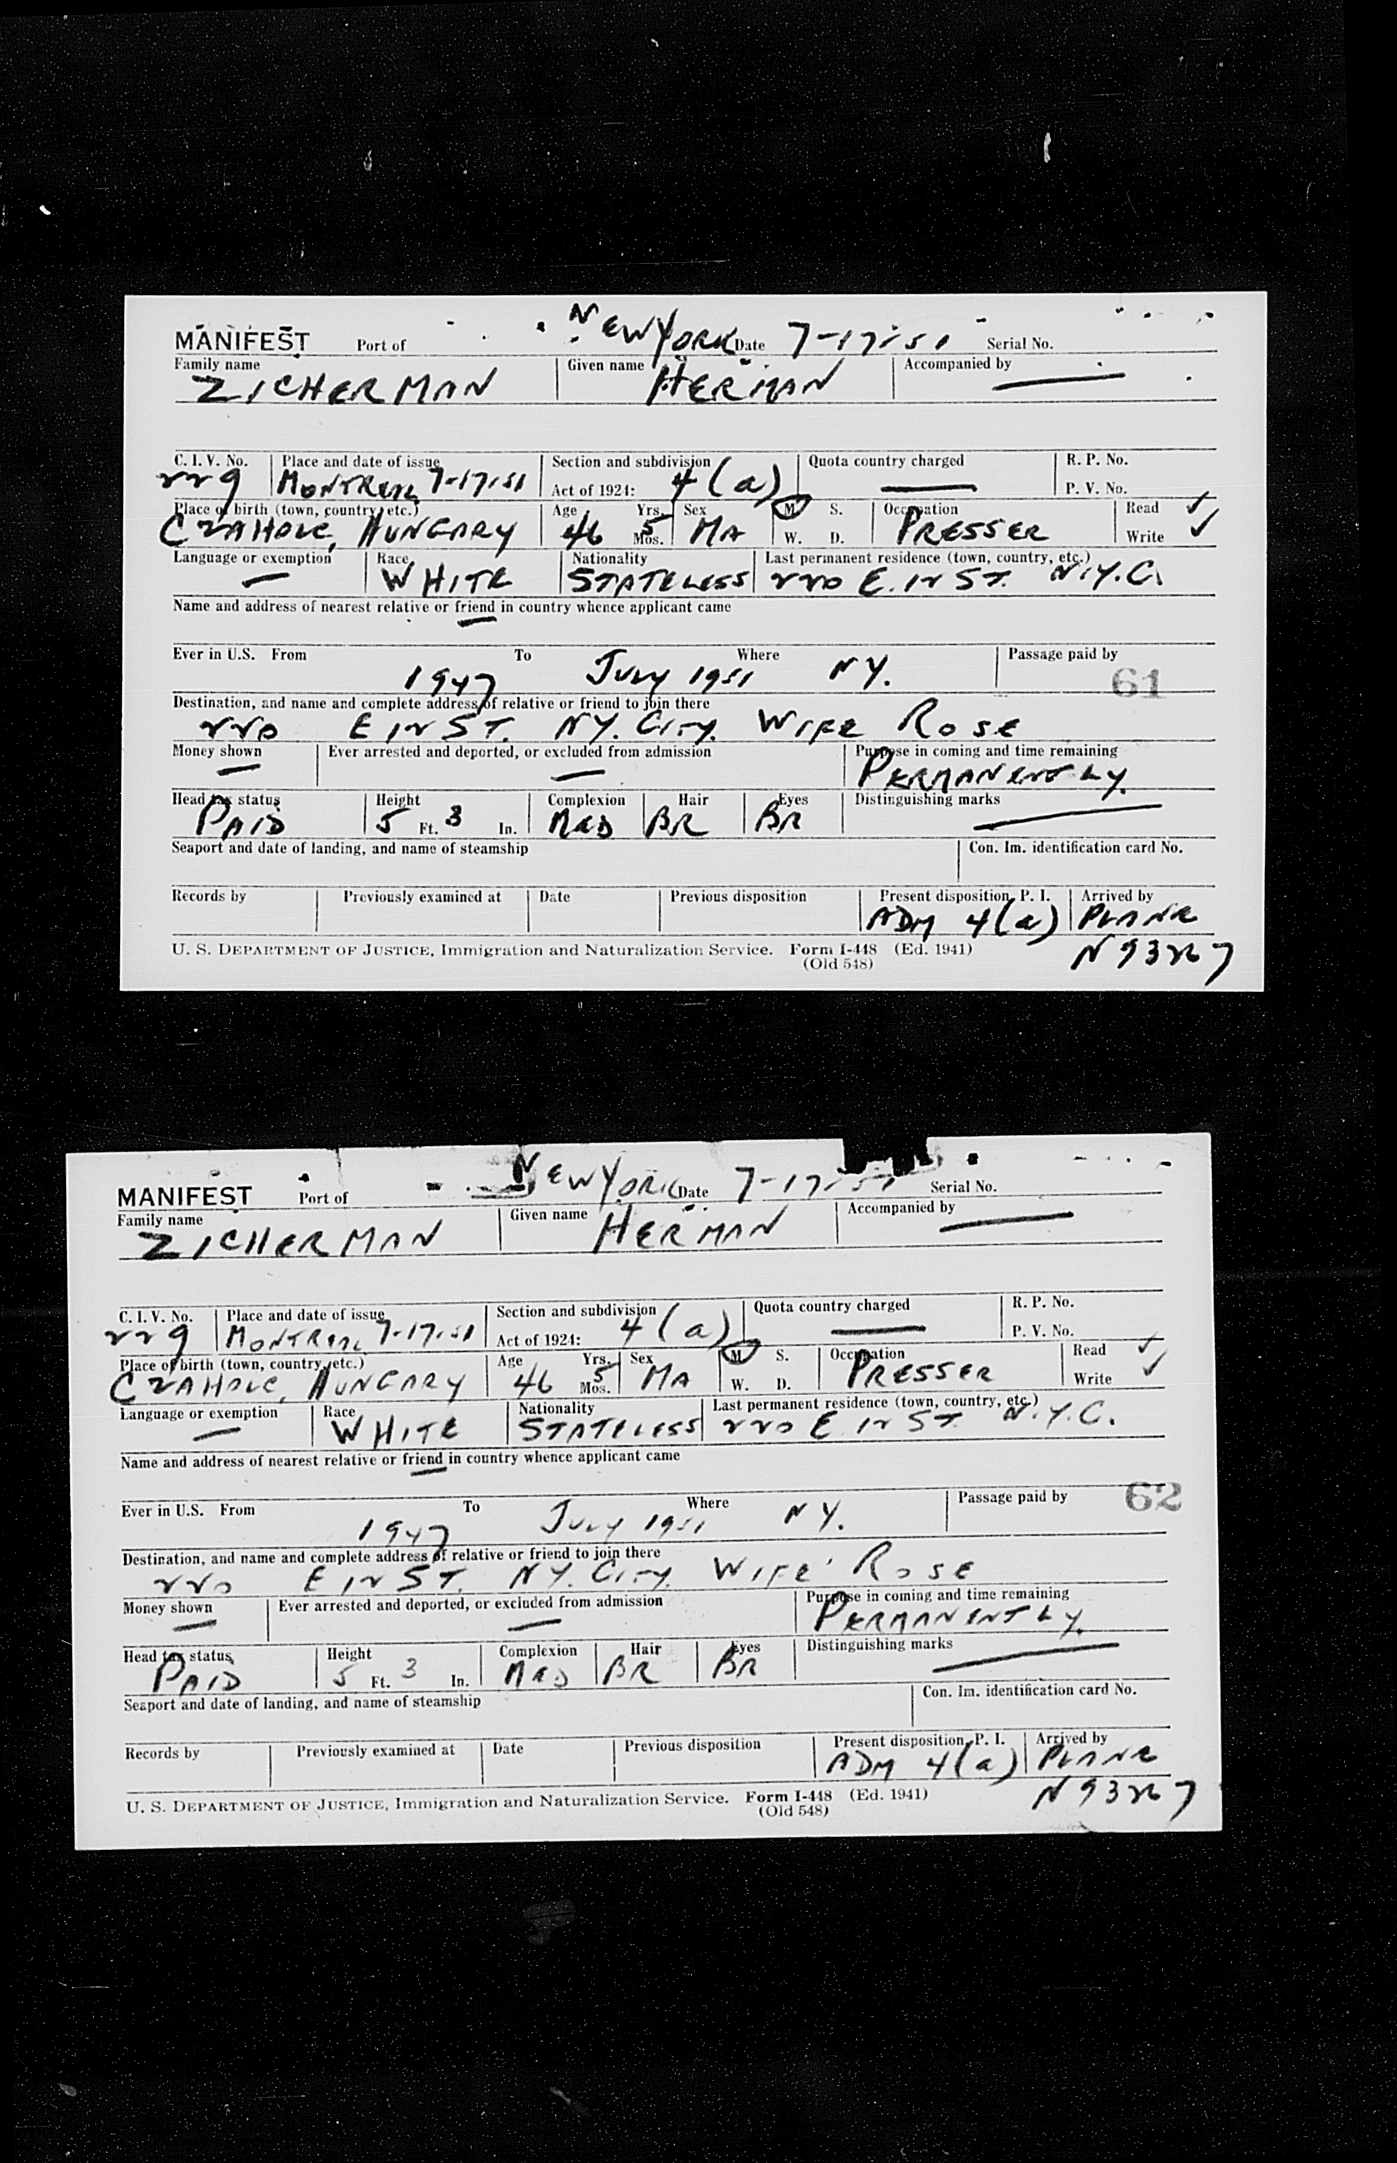 MANIFEST Port of NEW YORK Date 7-17-51 Serial No.
Family name Given name Accompanied by
ZICHERMAN HERMAN —
C. I. V. No. Place and date of issue Section and subdivision Quota country charged R. P. No.
229 MONTREAL 7-17-51 Act of 1924: 4 (a) — P. V. No.
Place of birth (town, country, etc.) Age Yrs. Sex M. S. Occupation Read ✓
HUNGARY 46 5 Mos. MA W. D. PRESSER Write ✓
Language or exemption Race Nationality Last permanent residence (town, country, etc.)
— WHITE STATELESS 220 E. 12 ST. N.Y.C.
Name and address of nearest relative or friend in country whence applicant came
—
Ever in U.S. From To Where Passage paid by
1947 JULY 1951 NY. 61
Destination, and name and complete address of relative or friend to join there
220 E 12 ST. NY. CITY. WIFE ROSE
Money shown Ever arrested and deported, or excluded from admission Purpose in coming and time remaining
— — PERMANENTLY.
Head tax status Height Complexion Hair Eyes Distinguishing marks
PAID 5 Ft. 3 In. MED BR BR —
Seaport and date of landing, and name of steamship Con. Im. identification card No.
Records by Previously examined at Date Previous disposition Present disposition, P. I. Arrived by
ADM 4(a) PLANE
U. S. DEPARTMENT OF JUSTICE, Immigration and Naturalization Service. Form I-448 (Ed. 1941) N93267
(Old 548)
MANIFEST Port of NEW YORK Date 7-17-51 Serial No.
Family name Given name Accompanied by
ZICHERMAN HERMAN —
C. I. V. No. Place and date of issue Section and subdivision Quota country charged R. P. No.
229 MONTREAL 7-17-51 Act of 1924: 4 (a) — P. V. No.
Place of birth (town, country, etc.) Age Yrs. Sex M. S. Occupation Read ✓
HUNGARY 46 5 Mos. MA W. D. PRESSER Write ✓
Language or exemption Race Nationality Last permanent residence (town, country, etc.)
— WHITE STATELESS 220 E 12 ST. N.Y.C.
Name and address of nearest relative or friend in country whence applicant came
—
Ever in U.S. From To Where Passage paid by 62
1947 JULY 1951 NY.
Destination, and name and complete address of relative or friend to join there
220 E 12 ST. NY. CITY. WIFE ROSE
Money shown Ever arrested and deported, or excluded from admission Purpose in coming and time remaining
— — PERMANENTLY.
Head tax status Height Complexion Hair Eyes Distinguishing marks
PAID 5 Ft. 3 In. MED BR BR —
Seaport and date of landing, and name of steamship Con. Im. identification card No.
Records by Previously examined at Date Previous disposition Present disposition, P. I. Arrived by
ADM 4(a) PLANE
U. S. DEPARTMENT OF JUSTICE, Immigration and Naturalization Service. Form I-448 (Ed. 1941) N93267
(Old 548)